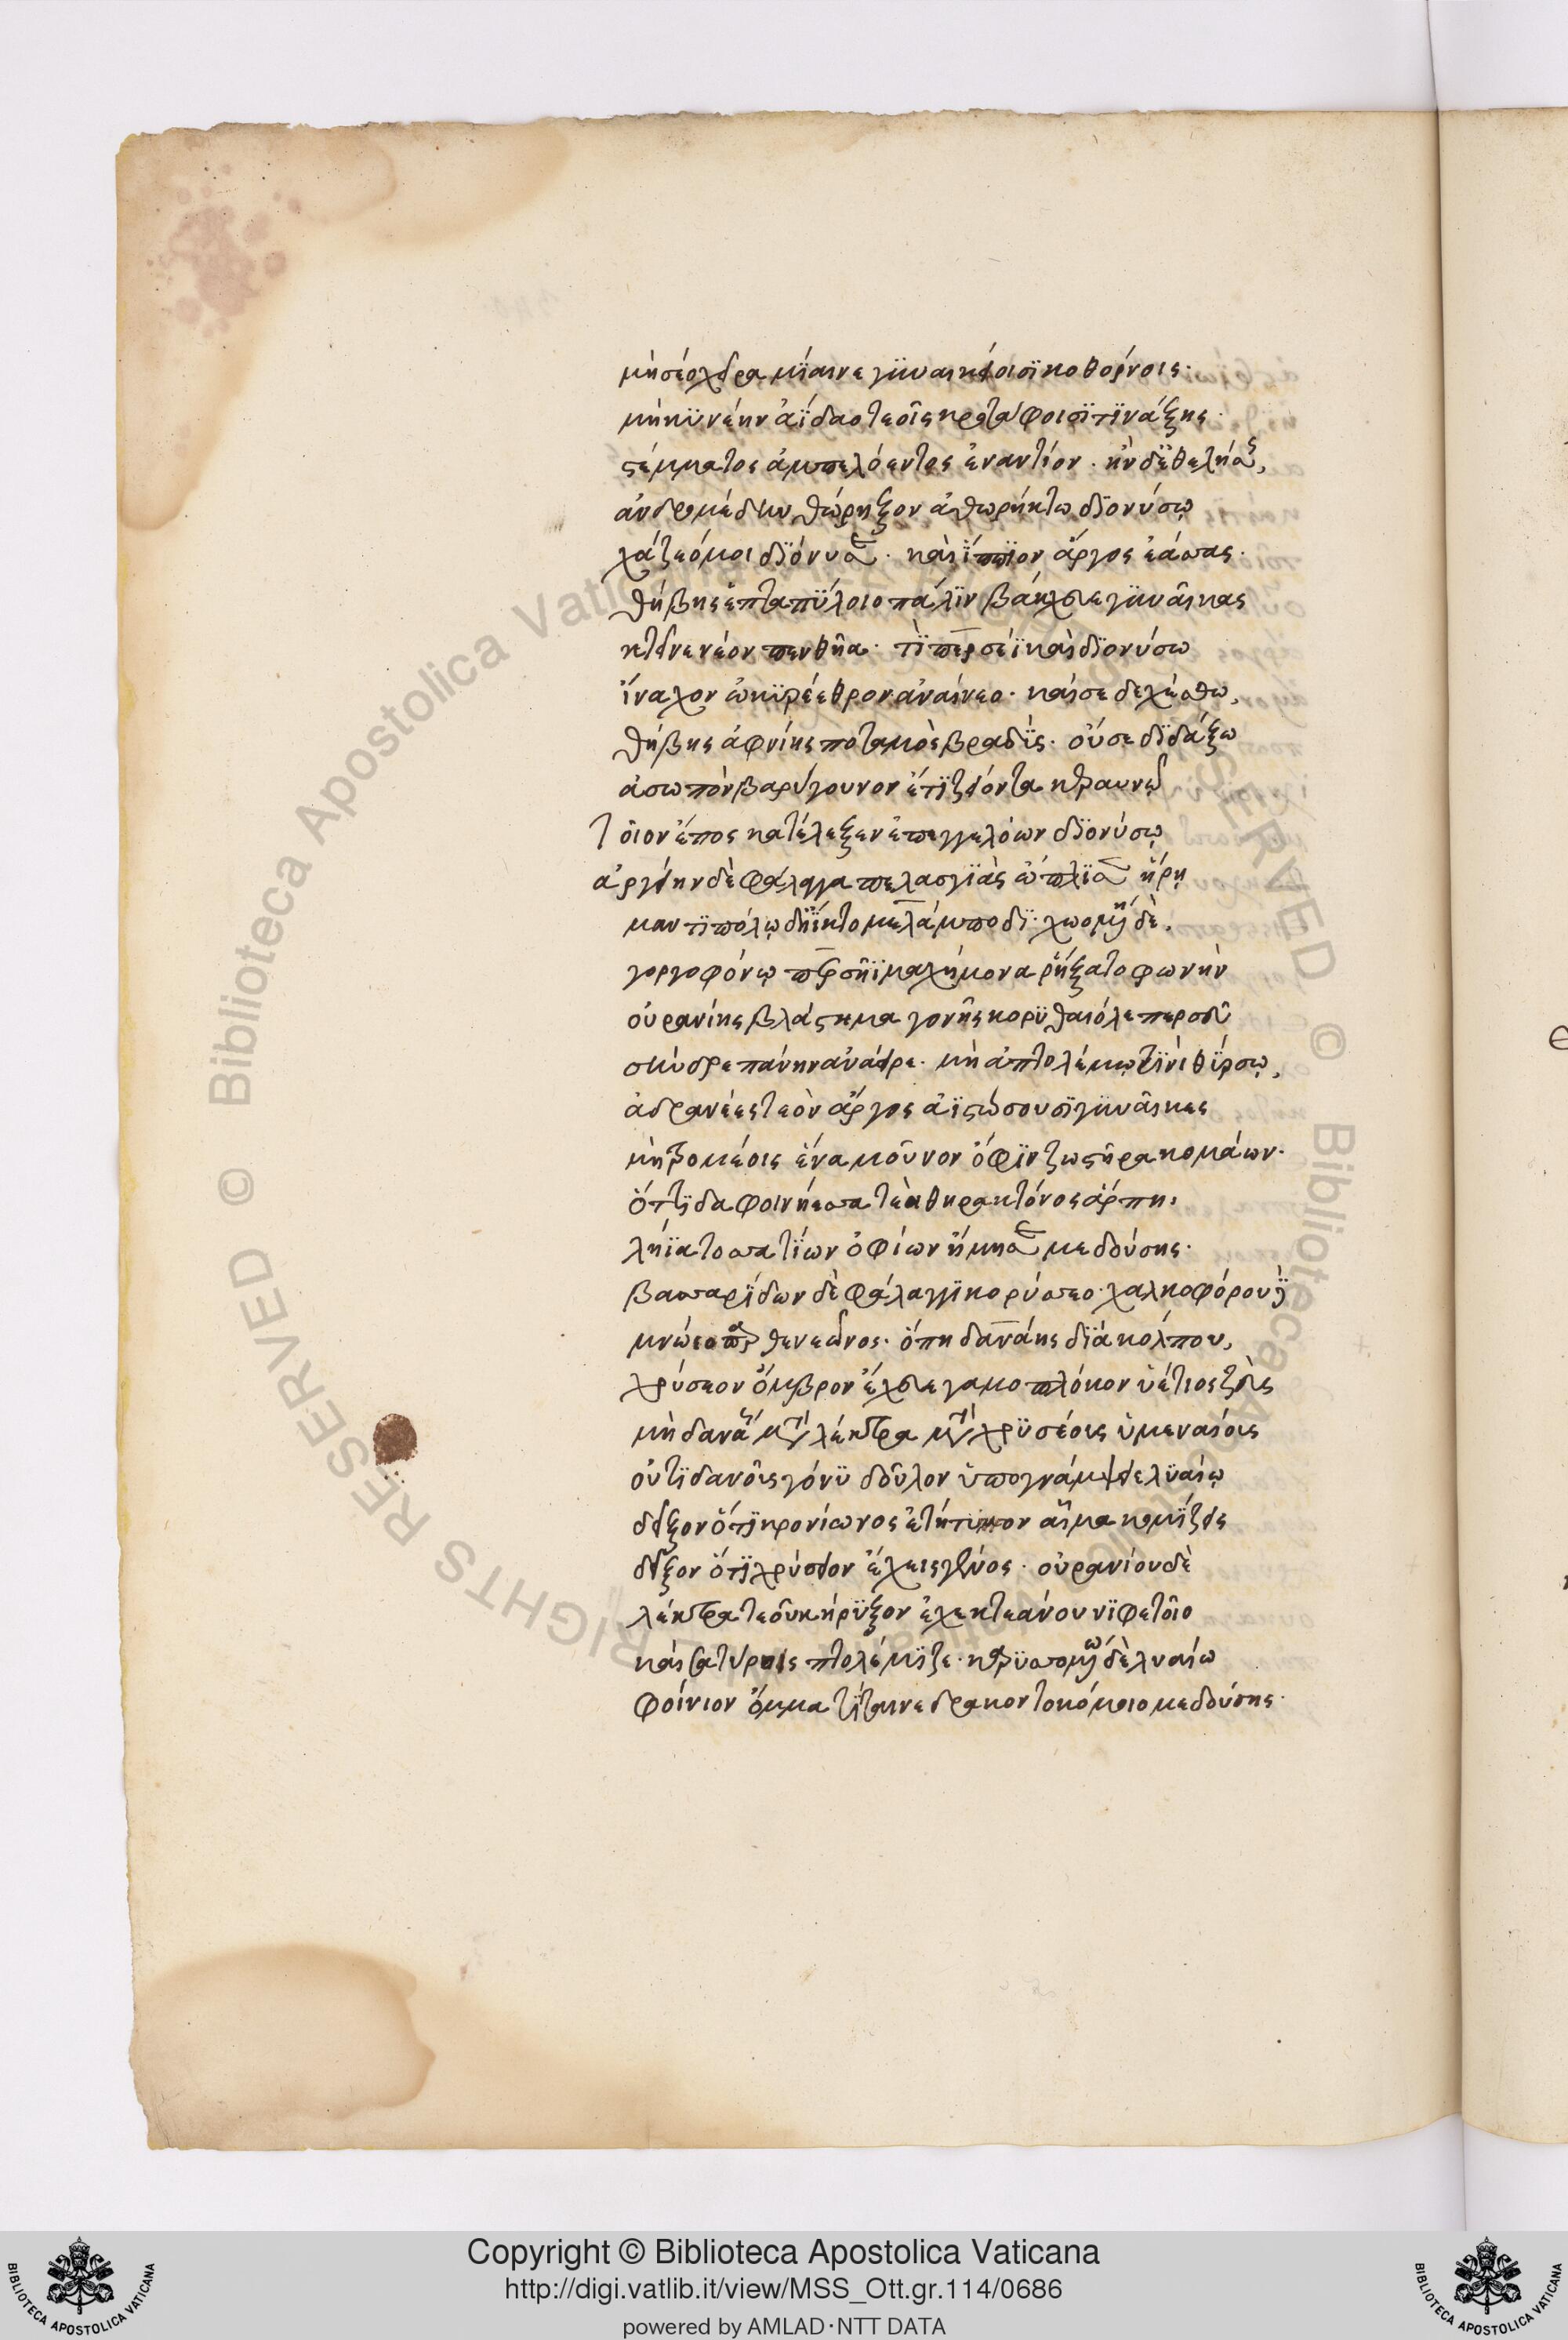 μὴ σέο χεῖρα μίαινε γϋναικείοισϊ κοθόρνοις·
μὴ κϋνέην ἀΐδαο τεοῖς κροτάφοισϊ τϊνάξης·
στέμματος ἀμπελόεντος ἐναντίον· ἢν δἐθελήσης,
ἀνδρομέδην θώρηξον ἀθωρήκτω δϊονύσω
χάζεό μοι δϊόνυσε· καὶ ἵππϊον ἄργος ἐάσας·
θήβης ἑπταπΰλοιο πάλϊν βάκχευε γϋναῖκας
κτεῖνε νέον πενθῆα· τὶ περσέϊ καὶ δϊονύσω
ἴναχον ὠκϋρέεθρον ἀναίνεο· καί σε δεχέσθω,
θήβης ἀφνίης ποταμὸς βραδῢς· οὔ σε δϊδάξω
ἀσωπὸν βαρύγουνον ἔτϊ ζείοντα κεραυνῶ
Τοῖον ἔπος κατέλεξεν ἐπεγγελόων δϊονύσω
ἀργείην δὲ φάλαγγα πελασγϊὰς ὥπλϊσεν ἥρη
μαντϊπόλω δἤϊκτο μελάμποδϊ· χωομένη δὲ,
γοργοφόνω περσῆϊ μαχήμονα ῥήξατο φωνὴν
οὐρανίης βλάστημα γονῆς κορϋθαιόλε περσεῦ
σεῖο δρεπάνην ἀνάειρε· μὴ ἀπτολέμω τϊνὶ θΰρσω,
ἀδρανέες τεὸν ἄργος ἀϊστώσουσϊ γϋναῖκες
μὴ τρομέοις ἕνα μοῦνον ὄφϊν ζωστῆρα κομάων·
ὅττϊ δαφοινήεσσα τεὰ θηρακτόνος ἅρπη,
ληΐατο σσατΐων ὀφίων ἤμησε μεδούσης·
βασσαρίδων δὲ φάλαγγϊ κορύσσεο· χαλκοφόρου δὲ
μνώεο παρθενεῶνος· ὅπη δανάης δϊὰ κόλπου,
χρύσεον ὄμβρον ἔχευε γαμοπλόκον ὑέτιος ζεῦς
μὴ δανάη μετὰ λέκτρα μετὰ χρϋσέοις ὑμεναίοις
οὐτϊδανοῖς γόνϋ δοῦλον ὑπογνάμψειε λϋαίω
δεῖξον ὅτϊ κρονίωνος ἐτήτϋμον αἷμα κομΐζεις
δεῖξον ὅτϊ χρύσειον ἔχεις γένος· οὐρανίου δὲ
λέκτρα τεοῦ κήρϋξον ἐχεκτεάνου νϊφετοῖο
καὶ σατύροις πτολέμϊζε· κορϋσσομένω δὲ λυαίω
φοίνιον ὄμμα τΐταινε δρακοντοκόμοιο μεδούσης·
Copyright © Biblioteca Apostolica Vaticana
http://digi.vatlib.it/view/MSS_Ott.gr.114/0686
powered by AMLAD·NTT DATA